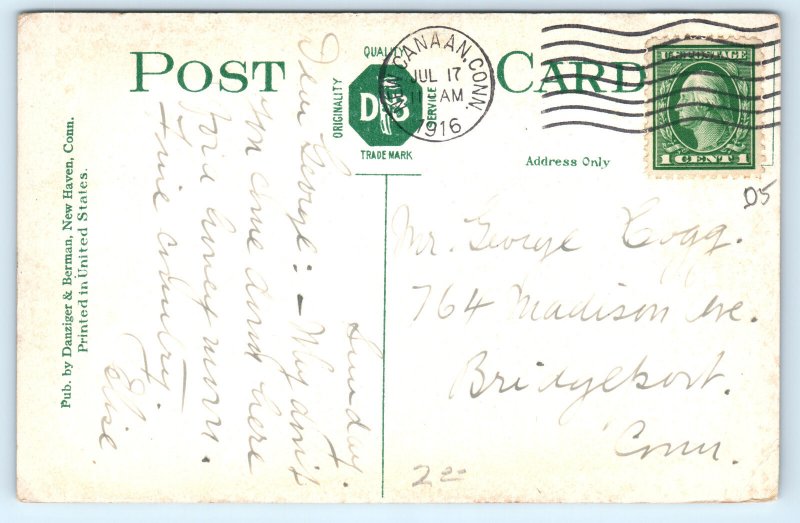 POST CARD
QUALITY
ORIGINALITY
SERVICE
D B
TRADE MARK
NEW CANAAN, CONN.
JUL 17
11 AM
1916
U.S. POSTAGE
1 CENT 1
Address Only
D5
Pub. by Danziger & Berman, New Haven, Conn.
Printed in United States.
Sunday.
Dear George: – Why don't
you come down here
for a honey moon.
Fine country.
Elsie
Mr. George
764 Madison Ave.
Bridgeport.
Conn.
2.00